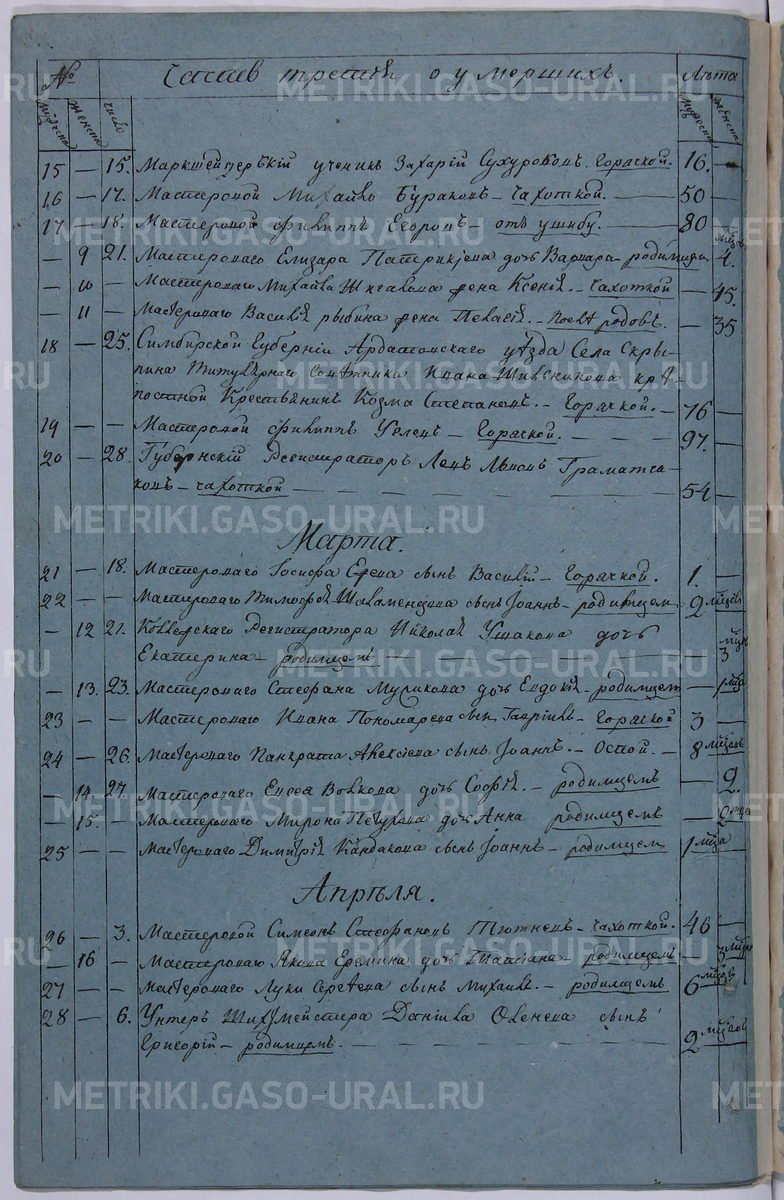 № Частъ третія о умершихъ. Лѣта
мужеска женска число мужеска женска
15 — 15. Маркшейдерскій ученикъ Захарій Сухоровъ. Горячкой. 16. —
16 — 17. Мастеровой Михайло Бураковъ — Чахоткой. — 50 —
17 — 18. Мастеровой Филиппъ Егоровъ — отъ ушибу. — 80
— 9 21. Мастероваго Елизара Патрикѣева дочь Варвара — родимцемъ — 4. мѣсяц
— 10 — Мастероваго Михайла женa Ксенія. — Чахоткой — 45.
— 11 — Мастероваго Василія Рыбина жена Пелагія. — после родовъ. — 35
18 — 25. Симбирской Губерніи Ардатовскаго уѣзда Села Скры-
пина Титулярнаго Совѣтника Ивана крѣ-
постной Крестьянинъ Козма Степановъ. — Горячкой. — 76 —
19 — — Мастеровой Филиппъ — Горячкой. — 97. —
20 — 28. Губернскій Регистраторъ Левъ Львовъ Граматча-
ковъ — чахоткой — 54 —
Марта.
21 — 18. Мастероваго Іосифа сынъ Василій — Горячкой. 1. —
22 — — Мастероваго Тимофея Шаламенцова сынъ Іоаннъ — родимцемъ — 2 мѣсяцовъ
— 12 21. Коллежскаго Регистратора Николая Ушакова дочь
Екатерина — родимцемъ — 3 мѣсяц
— 13. 23. Мастероваго Стефана Муликова дочь Евдокія — родимцемъ — 1 мѣсяца
23 — — Мастероваго Ивана Пономарева сынъ Гаврiилъ — Горячкой 3 —
24 — 26. Мастероваго Панкрата Алексѣева сынъ Іоаннъ. — Оспой. — 8 мѣсяцовъ
— 14. 27. Мастероваго Волкова дочь Софія. — родимцемъ — 2.
— 15. — Мастероваго Мирона Пѣтухова дочь Анна родимцемъ — 2 мѣсяца
25 — — Мастероваго Димитрія Кандакова сынъ Іоаннъ — родимцем 1 мѣсяца
Апрѣля.
26 — 3. Мастеровой Симеонъ Стефановъ — чахоткой. 46 —
— 16 — Мастероваго Якова Еремина дочь Татіана — родимцемъ — 3 мѣсяцовъ
27 — — Мастероваго Луки Сергѣева сынъ Михаилъ. — родимцемъ 6 мѣсяцовъ
28 — 6. Унтеръ Шихтмейстера Даніила сынъ
Григорій — родимцемъ. — 2 мѣсяцовъ
METRIKI.GASO-URAL.RU